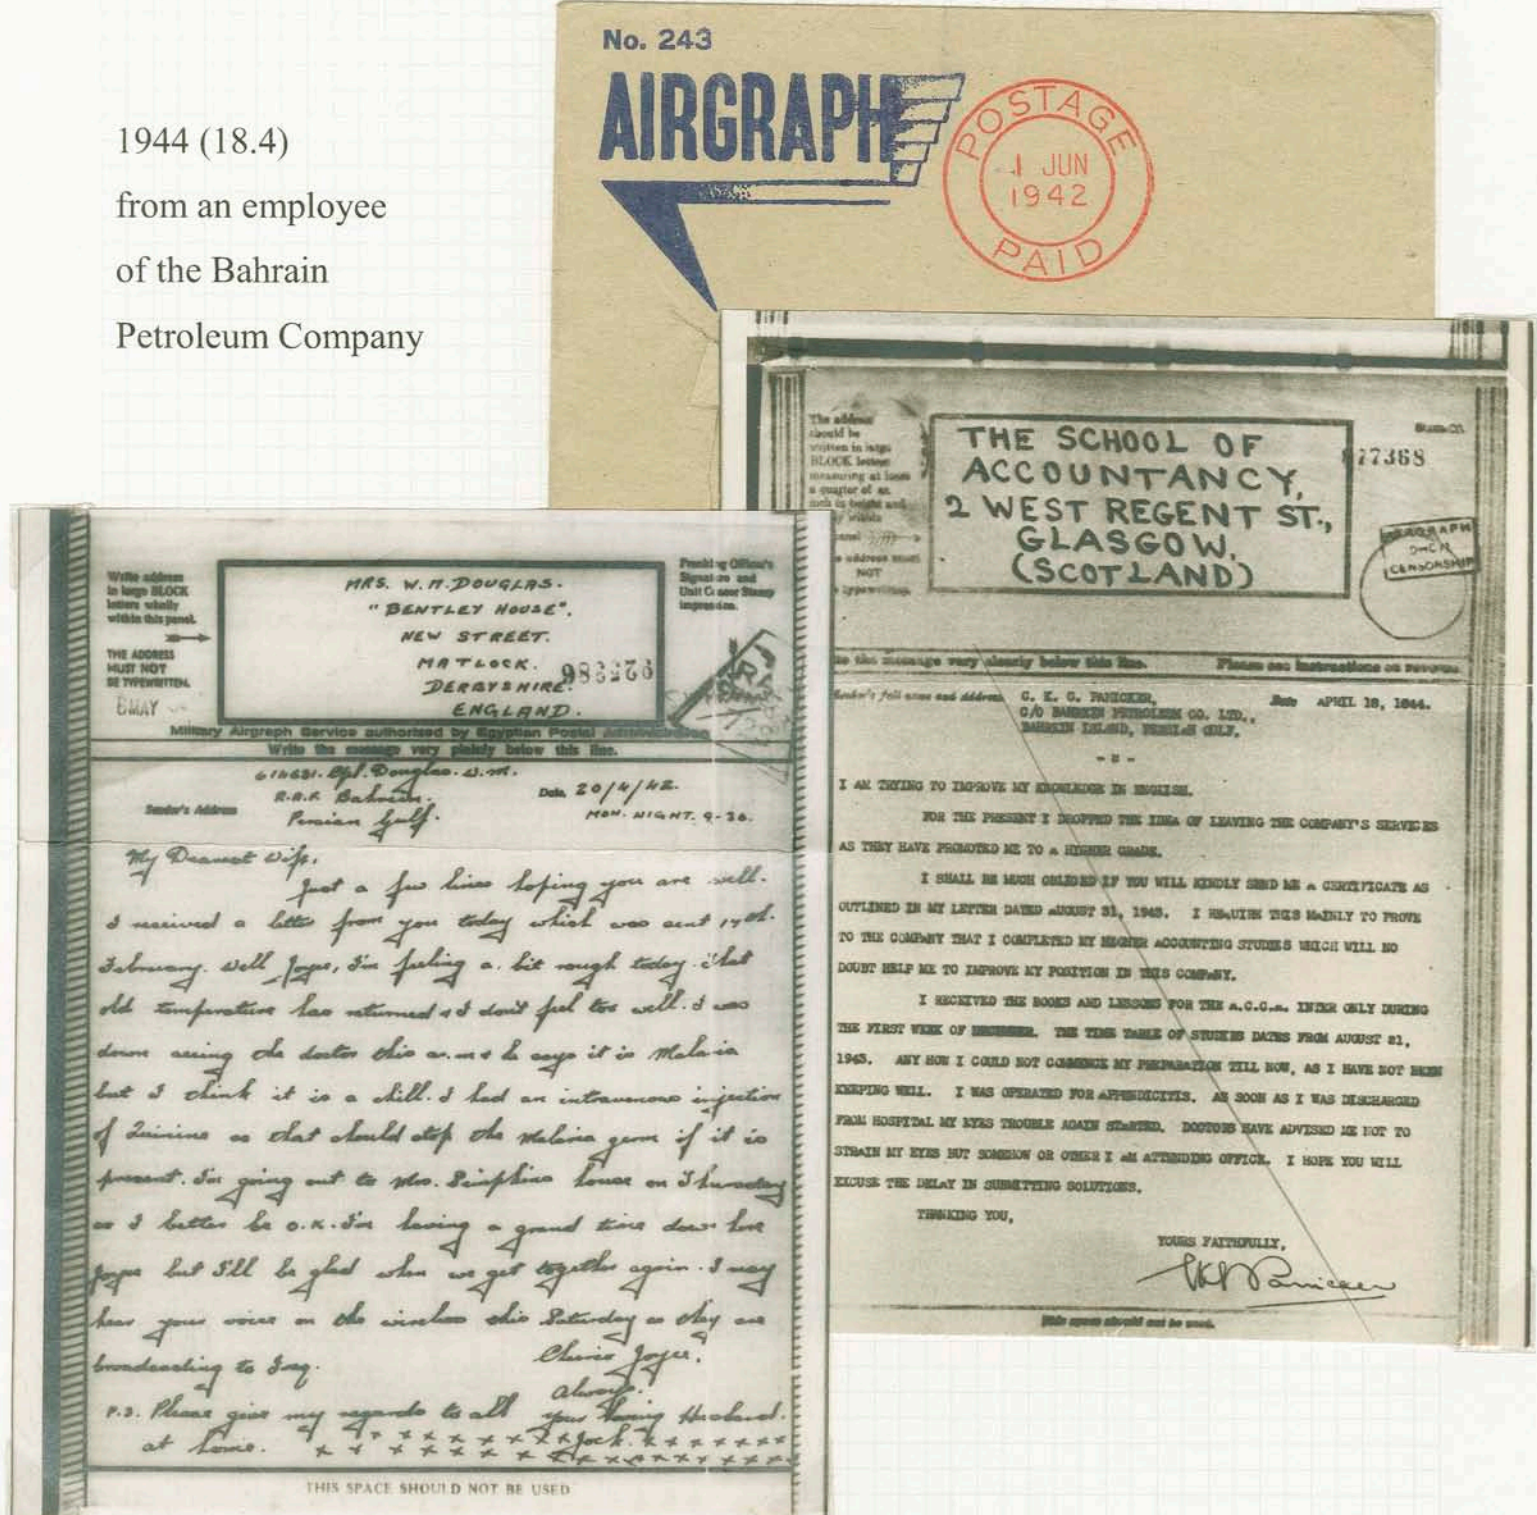 1944 (18.4)
from an employee
of the Bahrain
Petroleum Company
No. 243
AIRGRAPH
POSTAGE
1 JUN
1942
PAID
The address
should be
written in large
BLOCK letters
measuring at least
a quarter of an
inch in height and
within
address must
NOT
typewritten.
THE SCHOOL OF
ACCOUNTANCY,
2 WEST REGENT ST.,
GLASGOW.
(SCOTLAND)
77368
CENSORSHIP
the message very plainly below this line. Please see instructions on reverse.
Sender's full name and Address G. K. G. PANICKER, Date APRIL 18, 1944.
C/O BAHREIN PETROLEUM CO. LTD.,
BAHREIN ISLAND, PERSIAN GULF.
I AM TRYING TO IMPROVE MY KNOWLEDGE IN ENGLISH.
FOR THE PRESENT I DROPPED THE IDEA OF LEAVING THE COMPANY'S SERVICES
AS THEY HAVE PROMOTED ME TO A HIGHER GRADE.
I SHALL BE MUCH OBLIGED IF YOU WILL KINDLY SEND ME A CERTIFICATE AS
OUTLINED IN MY LETTER DATED AUGUST 31, 1943. I REQUIRE THIS MAINLY TO PROVE
TO THE COMPANY THAT I COMPLETED MY HIGHER ACCOUNTING STUDIES WHICH WILL NO
DOUBT HELP ME TO IMPROVE MY POSITION IN THIS COMPANY.
I RECEIVED THE BOOKS AND LESSONS FOR THE A.C.C.A. INTER ONLY DURING
THE FIRST WEEK OF DECEMBER. THE TIME TABLE OF STUDIES DATES FROM AUGUST 21,
1943. ANY HOW I COULD NOT COMMENCE MY PREPARATION TILL NOW, AS I HAVE NOT BEEN
KEEPING WELL. I WAS OPERATED FOR APPENDICITIS. AS SOON AS I WAS DISCHARGED
FROM HOSPITAL MY EYES TROUBLE AGAIN STARTED. DOCTORS HAVE ADVISED ME NOT TO
STRAIN MY EYES BUT SOMEHOW OR OTHER I AM ATTENDING OFFICE. I HOPE YOU WILL
EXCUSE THE DELAY IN SUBMITTING SOLUTIONS.
THANKING YOU,
YOURS FAITHFULLY,
Panicker
This space should not be used.
Write address
in large BLOCK
letters wholly
within this panel.
THE ADDRESS
MUST NOT
BE TYPEWRITTEN.
6 MAY
MRS. W. M. DOUGLAS.
"BENTLEY HOUSE".
NEW STREET.
MATLOCK.
DERBYSHIRE.
ENGLAND.
Franking Officer's
Signature and
Unit Censor Stamp
Impression.
Military Airgraph Service authorised by Egyptian Postal
Write the message very plainly below this line.
Cpl. Douglas. W.M.
Sender's Address R.A.F. Bahrein.
Persian Gulf.
Date 20/4/42.
MON. NIGHT. 9-30.
My Dearest Wife,
Just a few lines hoping you are well.
I received a letter from you today which was sent 14th.
February. Well Joyce, I'm feeling a bit rough today. That
old temperature has returned & I don't feel too well. I was
down seeing the doctor this a.m & he says it is Malaria
but I think it is a chill. I had an intravenous injection
of Quinine so that should stop the Malaria germ if it is
present. I'm going out to Mrs. house on Thursday
so I better be o.k. I'm having a grand time down here
Joyce but I'll be glad when we get together again. I may
hear your voice on the wireless this Saturday as they are
broadcasting to Iraq.
Cheerio Joyce,
Always.
your loving Husband.
Jock.
P.S. Please give my regards to all
at home.
THIS SPACE SHOULD NOT BE USED